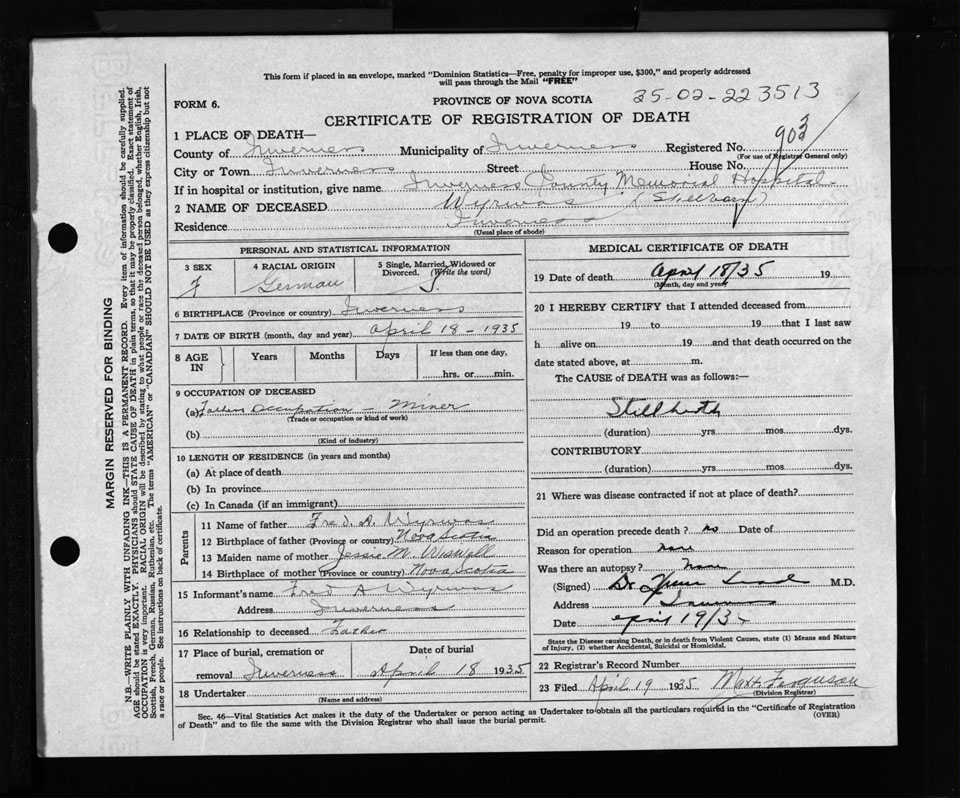 This form if placed in an envelope, marked "Dominion Statistics—Free, penalty for improper use, $300," and properly addressed
will pass through the Mail "FREE"
FORM 6.
PROVINCE OF NOVA SCOTIA
35-02-223513
CERTIFICATE OF REGISTRATION OF DEATH
903
1 PLACE OF DEATH—
County of Inverness Municipality of Inverness Registered No.
(For use of Registrar General only)
City or Town Inverness Street House No.
If in hospital or institution, give name Inverness County Memorial Hospital
2 NAME OF DECEASED Wyrwas (Stillborn)
Residence Inverness
(Usual place of abode)
PERSONAL AND STATISTICAL INFORMATION
3 SEX F
4 RACIAL ORIGIN German
5 Single, Married, Widowed or Divorced. (Write the word) S.
6 BIRTHPLACE (Province or country) Inverness
7 DATE OF BIRTH (month, day and year) April 18 - 1935
8 AGE IN Years Months Days If less than one day, hrs. or min.
9 OCCUPATION OF DECEASED
(a) Fathers Occupation - Miner
(Trade or occupation or kind of work)
(b)
(Kind of industry)
10 LENGTH OF RESIDENCE (in years and months)
(a) At place of death
(b) In province
(c) In Canada (if an immigrant)
Parents
11 Name of father Fred. A. Wyrwas
12 Birthplace of father (Province or country) Nova Scotia
13 Maiden name of mother Jessie M. Wiswell
14 Birthplace of mother (Province or country) Nova Scotia
15 Informant's name Fred A Wyrwas
Address Inverness
16 Relationship to deceased Father
17 Place of burial, cremation or removal Inverness
Date of burial April 18 1935
18 Undertaker
(Name and address)
MEDICAL CERTIFICATE OF DEATH
19 Date of death April 18/35 19
(Month, day and year)
20 I HEREBY CERTIFY that I attended deceased from
19 to 19 that I last saw
h alive on 19 and that death occurred on the
date stated above, at m.
The CAUSE of DEATH was as follows:—
Stillbirth
(duration) yrs. mos. dys.
CONTRIBUTORY
(duration) yrs. mos. dys.
21 Where was disease contracted if not at place of death?
Did an operation precede death? no Date of
Reason for operation none
Was there an autopsy? none
(Signed) Dr. M.D.
Address
Date April 19/35
State the Disease causing Death, or in death from Violent Causes, state (1) Means and Nature
of Injury, (2) whether Accidental, Suicidal or Homicidal.
22 Registrar's Record Number
23 Filed April 19 1935 Ferguson
(Division Registrar)
Sec. 46—Vital Statistics Act makes it the duty of the Undertaker or person acting as Undertaker to obtain all the particulars required in the "Certificate of Registration
of Death" and to file the same with the Division Registrar who shall issue the burial permit.
(OVER)
MARGIN RESERVED FOR BINDING
N.B.—WRITE PLAINLY WITH UNFADING INK—THIS IS A PERMANENT RECORD. Every item of information should be carefully supplied.
AGE should be stated EXACTLY. PHYSICIANS should STATE CAUSE OF DEATH in plain terms, so that it may be properly classified. Exact statement of
OCCUPATION is very important. RACIAL ORIGIN will be described by stating to what people or race the deceased person belonged, whether English, Irish,
Scottish, French, German, Russian, Ruthenian, etc. The terms "AMERICAN" or "CANADIAN" SHOULD NOT BE USED as they express citizenship but not
a race or people. See instructions on back of certificate.